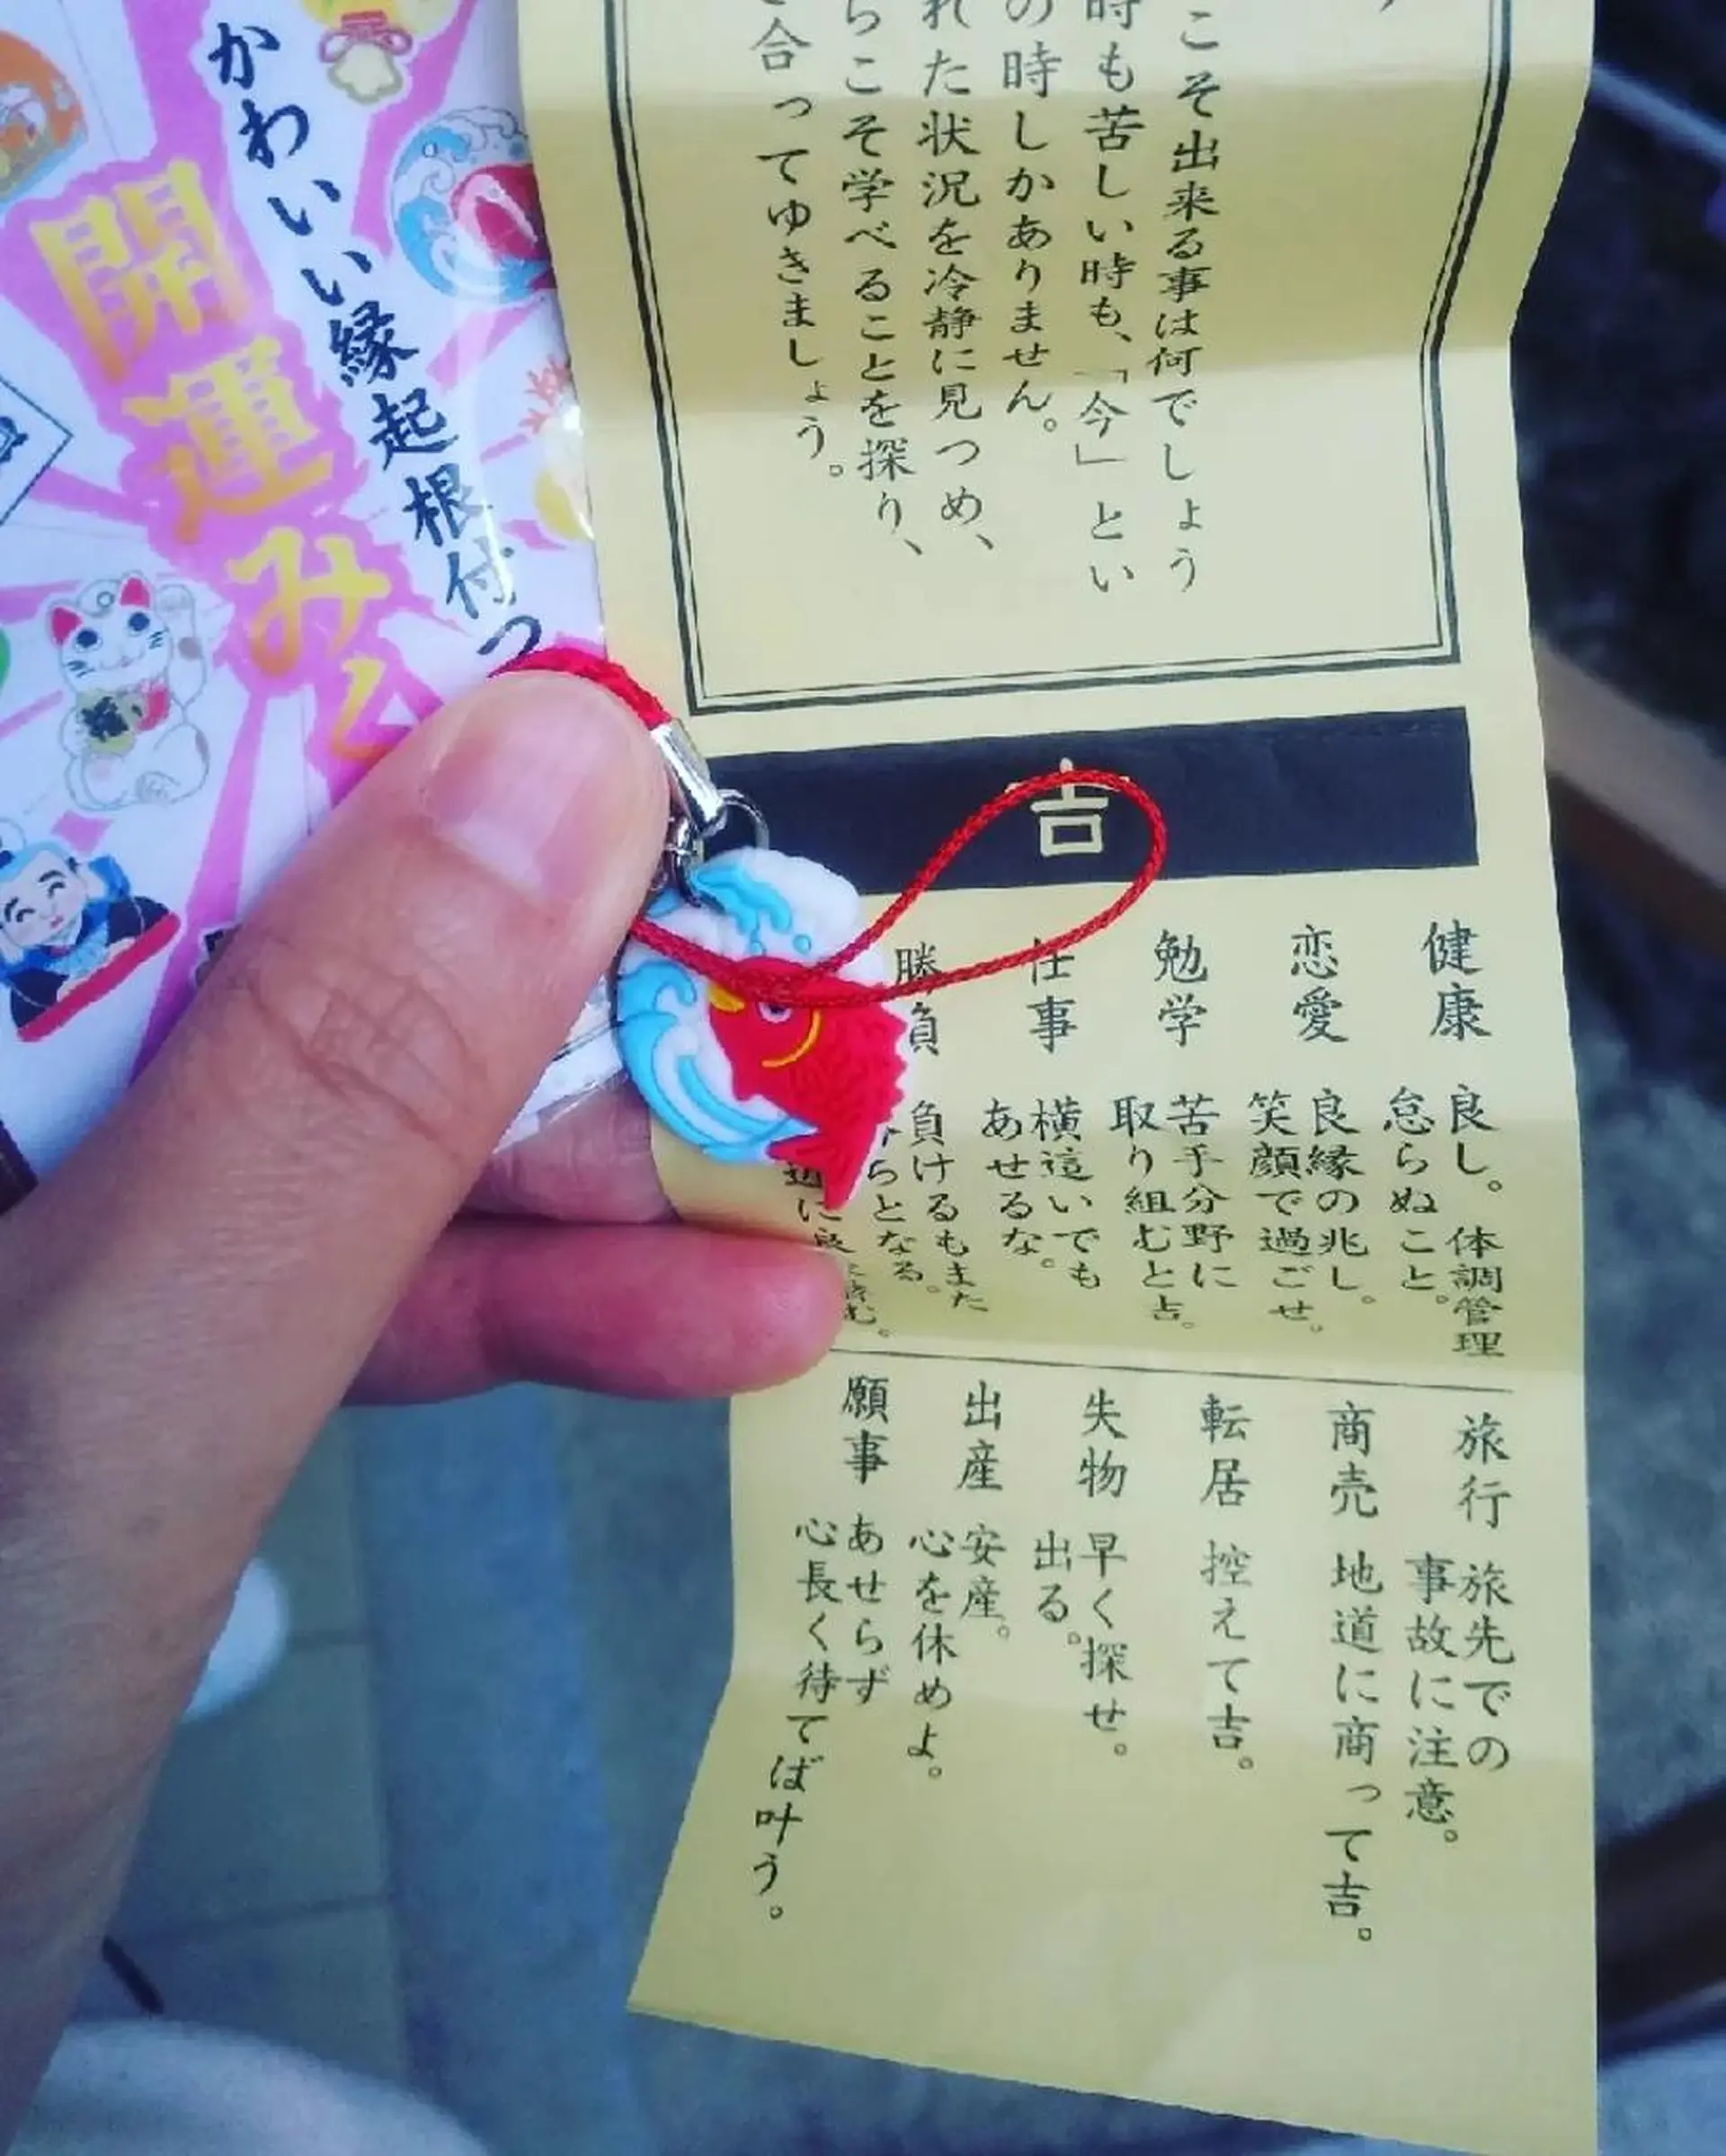 かわいい縁起根付つ
開運みく
こそ出来る事は何でしょう
時も苦しい時も、「今」とい
の時しかありません。
れた状況を冷静に見つめ、
らこそ学べることを探り、
合ってゆきましょう。
吉
健康
良し。体調管理
怠らぬこと。
恋愛
良縁の兆し。
笑顔で過ごせ。
勉学
苦手分野に
取り組むと吉。
仕事
横這いでも
あせるな。
勝負
負けるもまた
らとなる。
旅行
旅先での
事故に注意。
商売
地道に商って吉。
転居
控えて吉。
失物
早く探せ。
出る。
出産
安産。
心を休めよ。
願事
あせらず
心長く待てば叶う。